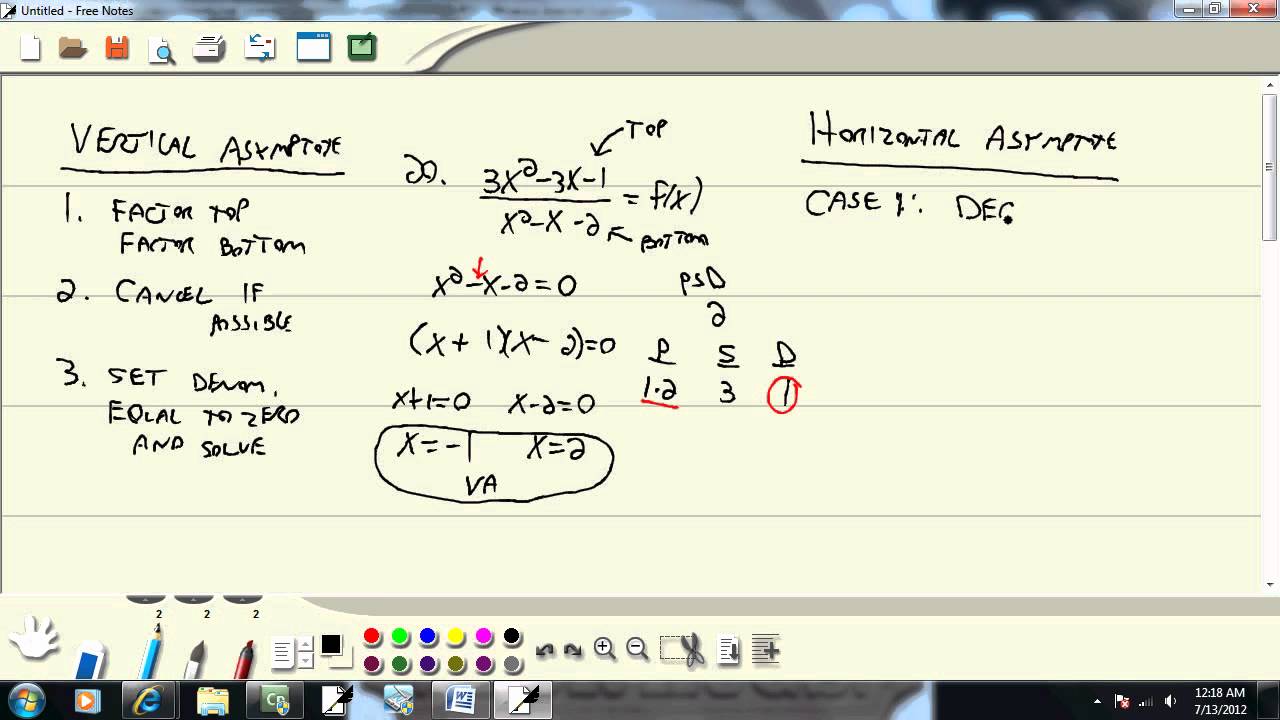 Untitled - Free Notes
VERTICAL ASYMPTOTE
1. FACTOR TOP
FACTOR BOTTOM
2. CANCEL IF
POSSIBLE
3. SET DENOM.
EQUAL TO ZERO
AND SOLVE
TOP
20. 3x²-3x-1 / x²-x-2 = f(x)
BOTTOM
x²-x-2=0
(x+1)(x-2)=0
x+1=0 x-2=0
x=-1 x=2
VA
PSD
2
P S D
1·2 3 1
HORIZONTAL ASYMPTOTE
CASE 1: DEG
2 2 2
12:18 AM
7/13/2012